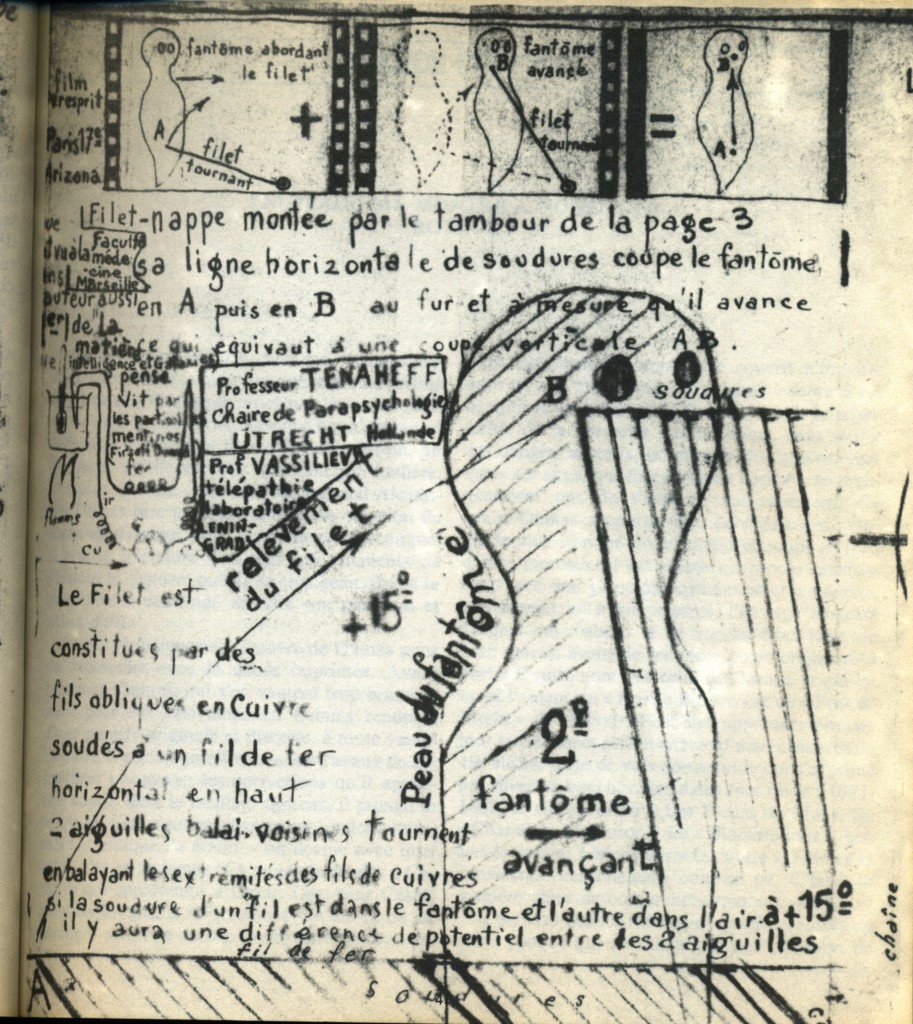 fantôme abordant
le filet
A
filet
tournant
+
fantôme
avancé
B
filet
tournant
=
B
A
film
Paris 17e
Arizona
Filet-nappe montée par le tambour de la page 3
sa ligne horizontale de soudures coupe le fantôme
en A puis en B au fur et à mesure qu'il avance
ce qui équivaut à une coupe verticale AB.
Faculté
méde
cine
Marseille
auteur aussi
de la
matière
intelligence et
pense
Vit par
les particul
ter
Professeur TENAHEFF
Chaire de Parapsychologie
UTRECHT Hollande
Prof VASSILIEV
télépathie
laboratoire
LENIN-
GRAD
ir
Cu
B
A
soudures
relèvement
du filet
+15°
Peau du fantôme
Le Filet est
constitués par des
fils obliques en Cuivre
soudés à un fil de fer
horizontal en haut
2 aiguilles balai voisines tournent
en balayant les extrémités des fils de Cuivres
si la soudure d'un fil est dans le fantôme et l'autre dans l'air à +15°
il y aura une différence de potentiel entre les 2 aiguilles
2e
fantôme
avançant
chaîne
fil de fer
A
Soudures